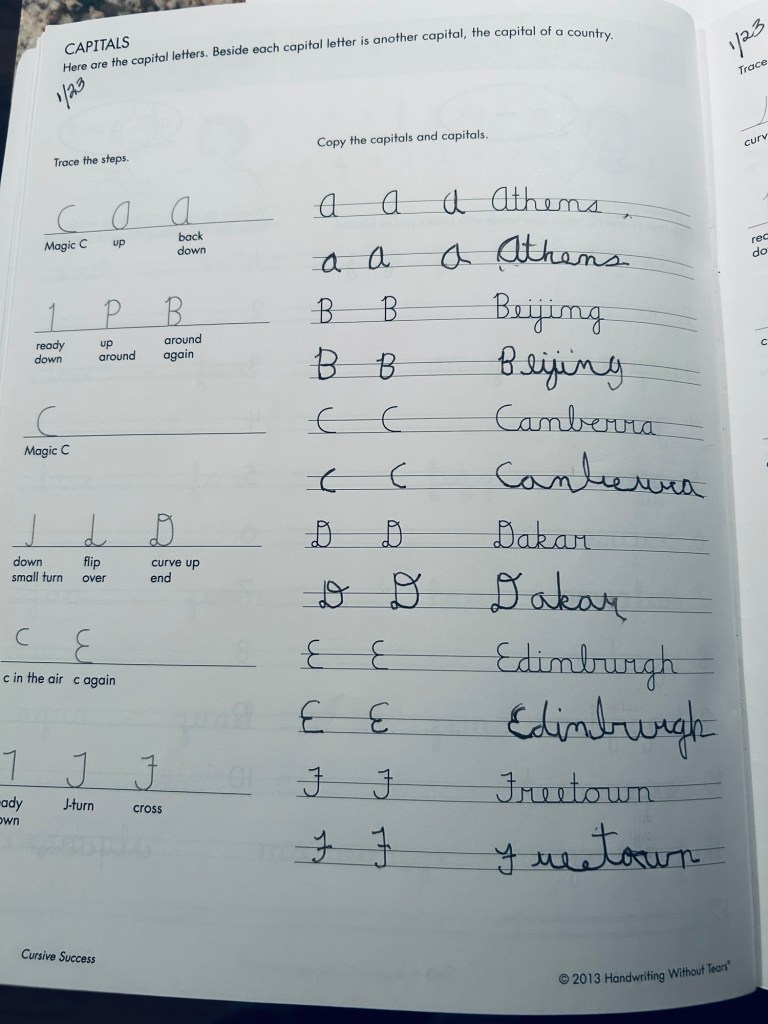 CAPITALS
Here are the capital letters. Beside each capital letter is another capital, the capital of a country.
1/23
1/23
Trace
Copy the capitals and capitals.
Trace the steps.
C a a
Magic C up back down
a a a Athens
a a a Athens
1 P B
ready down up around around again
B B Beijing
B B Beijing
C
Magic C
C C Canberra
C C Canberra
J L D
down small turn flip over curve up end
D D Dakar
D D Dakar
c E
c in the air c again
E E Edinburgh
E E Edinburgh
1 J F
ady own J-turn cross
F F Freetown
F F Freetown
Cursive Success
© 2013 Handwriting Without Tears®